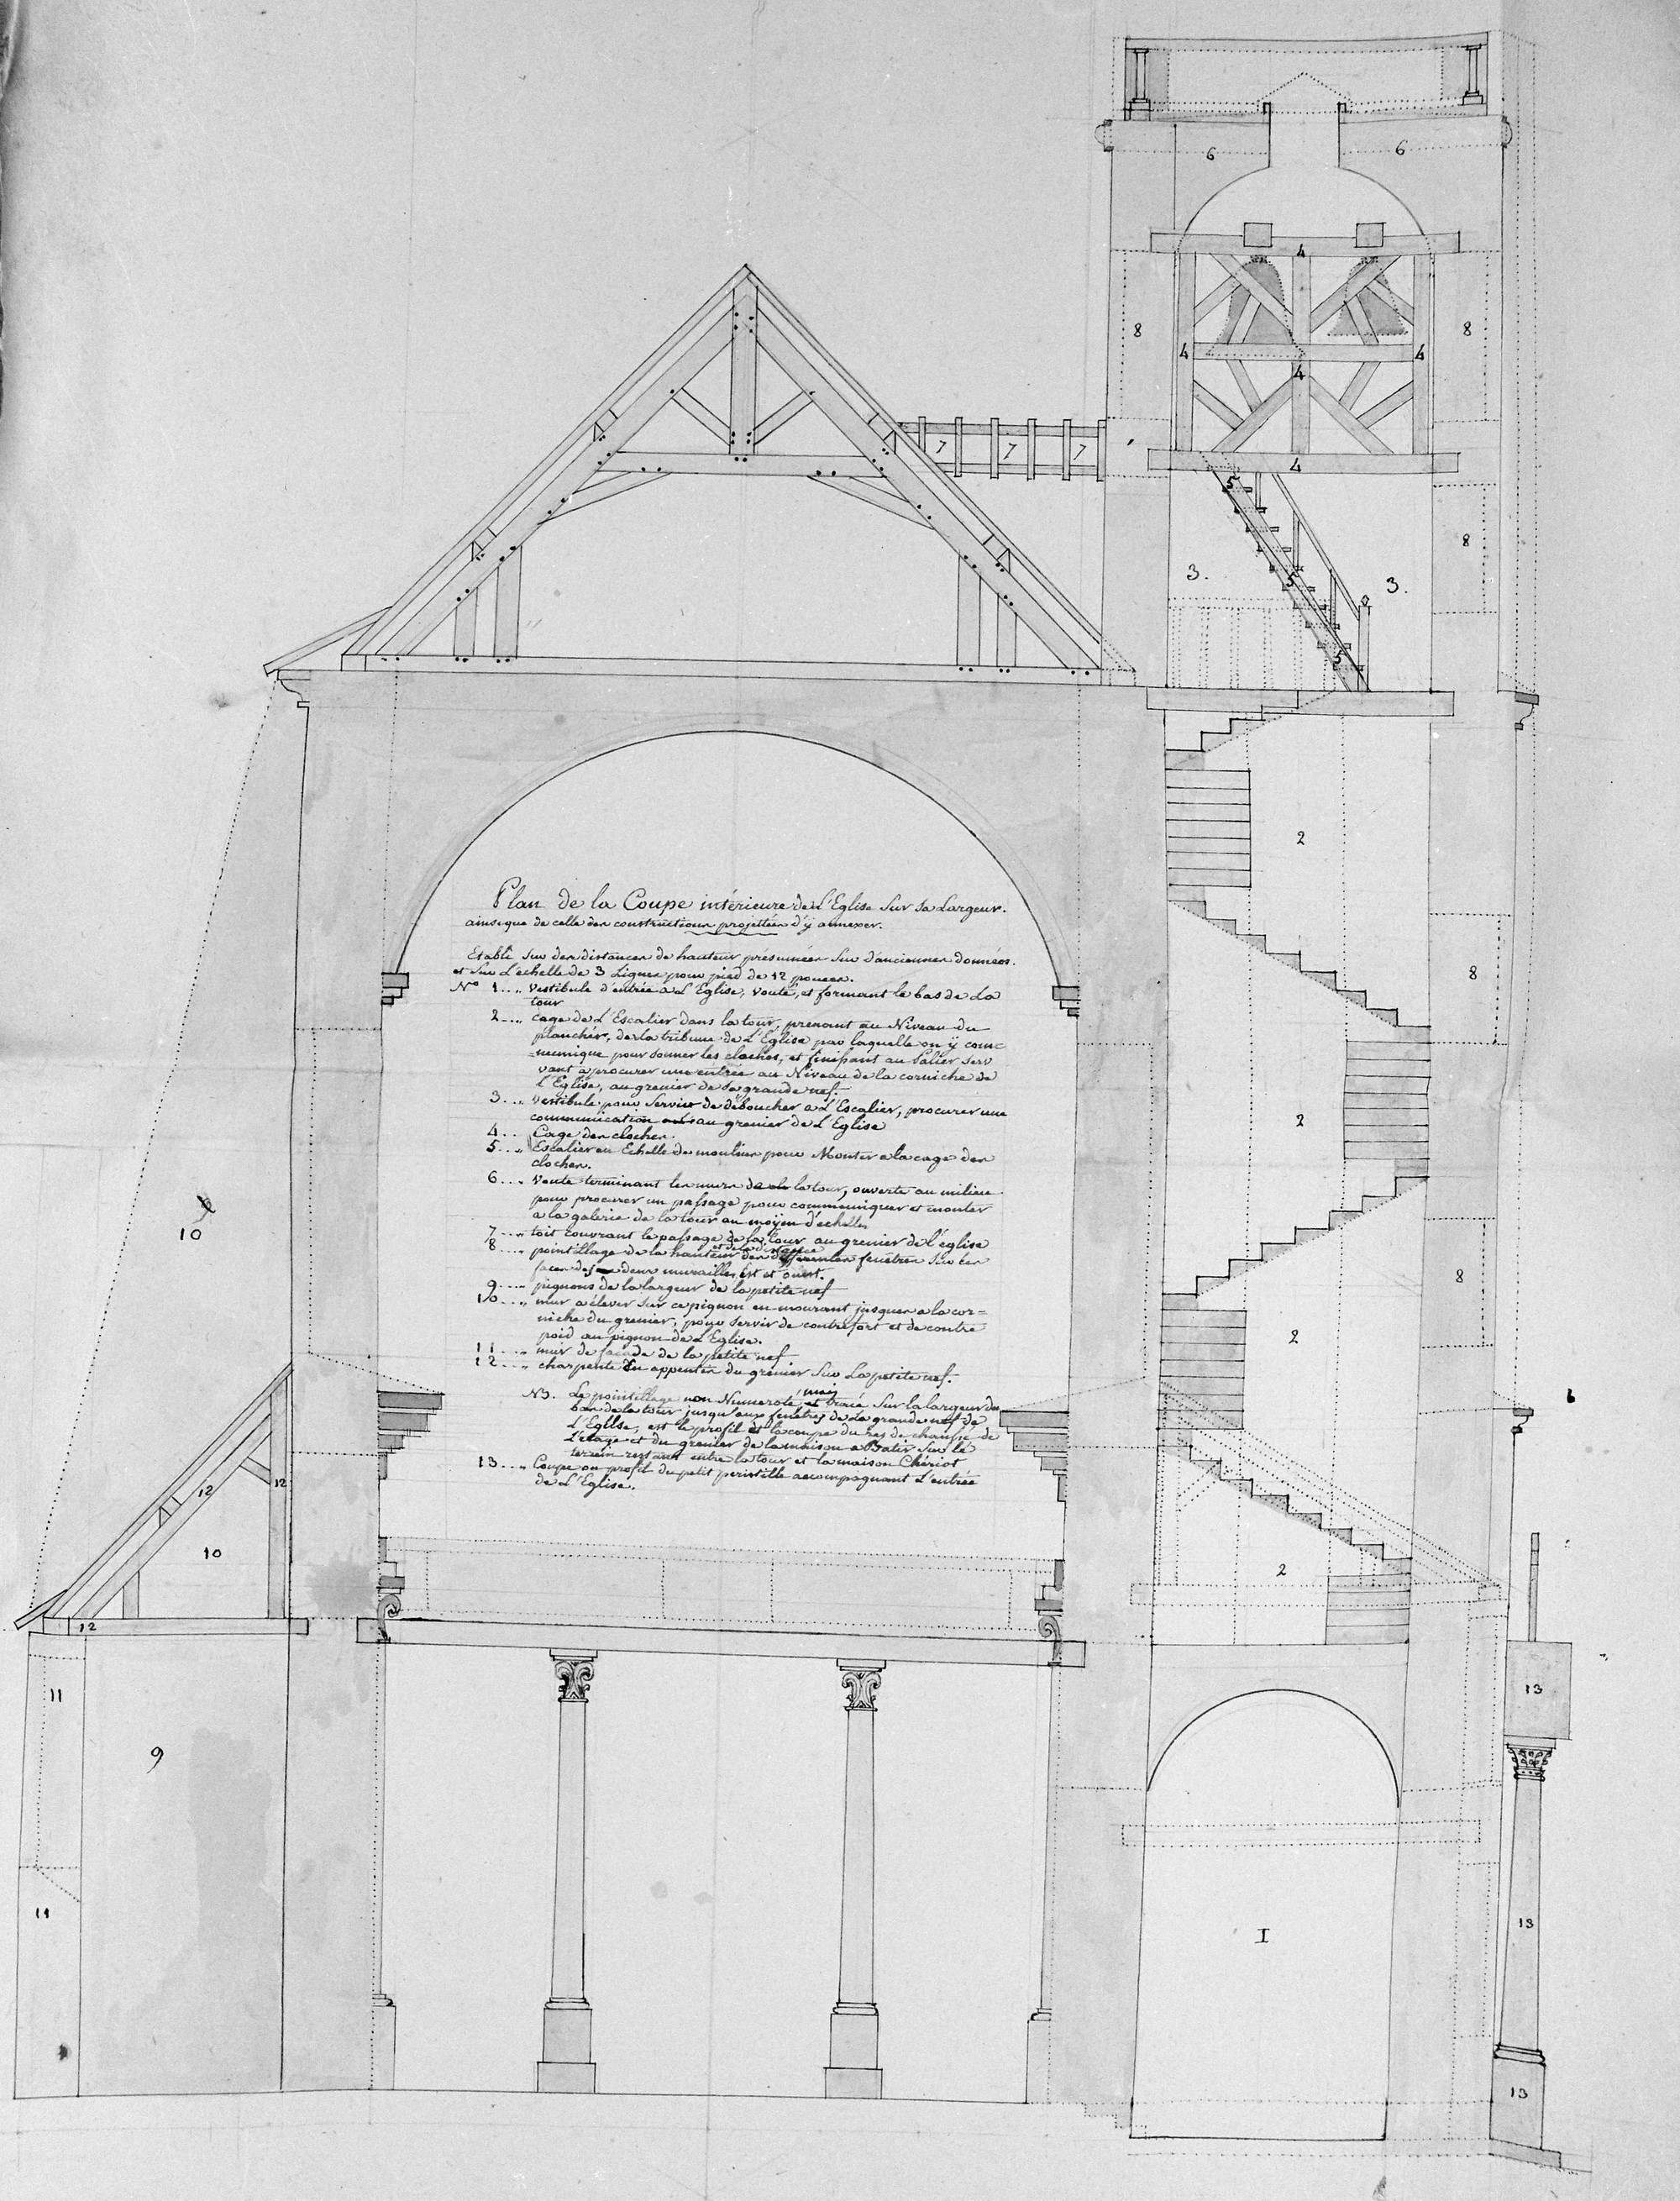 6
6
4
8
8
4
4
4
7
7
7
4
5
8
3.
5
3.
5
2
Plan de la Coupe intérieure de L'Eglise Sur Sa Largeur.
ainsique de celle des constructions projettées d'ÿ annexer.
Etabli Sur des distances de hauteur présumées Sur d'anciennes données.
et Sur L'echelle de 3 Lignes pour pied de 12 pouces.
No 1 .... vestibule d'entrée a L'Eglise, Vouté, et formant le bas de La
tour
2 .... cage de L'Escalier dans la tour, prenant au Niveau du
planchér, de la tribune de L'Eglise par laquelle on ÿ com=
=munique pour sonner les cloches, et finissant au Palier Serv
vant a procurer une entrée au Niveau de la corniche de
L'Eglise, au grenier de Sa grande nef.
3 ... vestibule pour Servir de déboucher a L'Escalier, procurer une
communication au grenier de L'Eglise
4 .. Cage des cloches.
5 ... Escalier en Echelle de moulin pour Monter a la cage des
cloches.
6 .... Voute terminant les murs de la tour, ouverte au milieu
pour procurer un passage pour communiquer et monter
a la galerie de la tour au moÿen d'echelles
7 .... toit couvrant le passage de la tour au grenier de l'église
8 .... pointillage de la hauteur et de la distance des differentes fenêtres Sur les
faces des deux murailles, Est et ouest.
9 .... pignons de la largeur de la petite nef
10 .... mur a élever Sur ce pignon en mourant jusques a la cor=
niche du grenier, pour servir de contrefort et de contre
poid au pignon de L'Eglise.
11 .... mur de façade de la petite nef
12 .... charpente en appentis du grenier Sur La petite nef.
NB. Le pointillage non Numeroté, mais tracé Sur la largeur du
bas de la tour jusqu'aux fenêtres de La grande nef de
L'Eglise, est le profil et la coupe du rez de chaussé de
L'étage et du grenier de la maison a Batir Sur le
terrein restant entre la tour et la maison Chériot
13 ... Coupe ou profil du petit peristille accompagnant L'entrée
de L'Eglise.
8
2
10
8
2
12
12
10
2
12
11
13
9
11
13
I
13